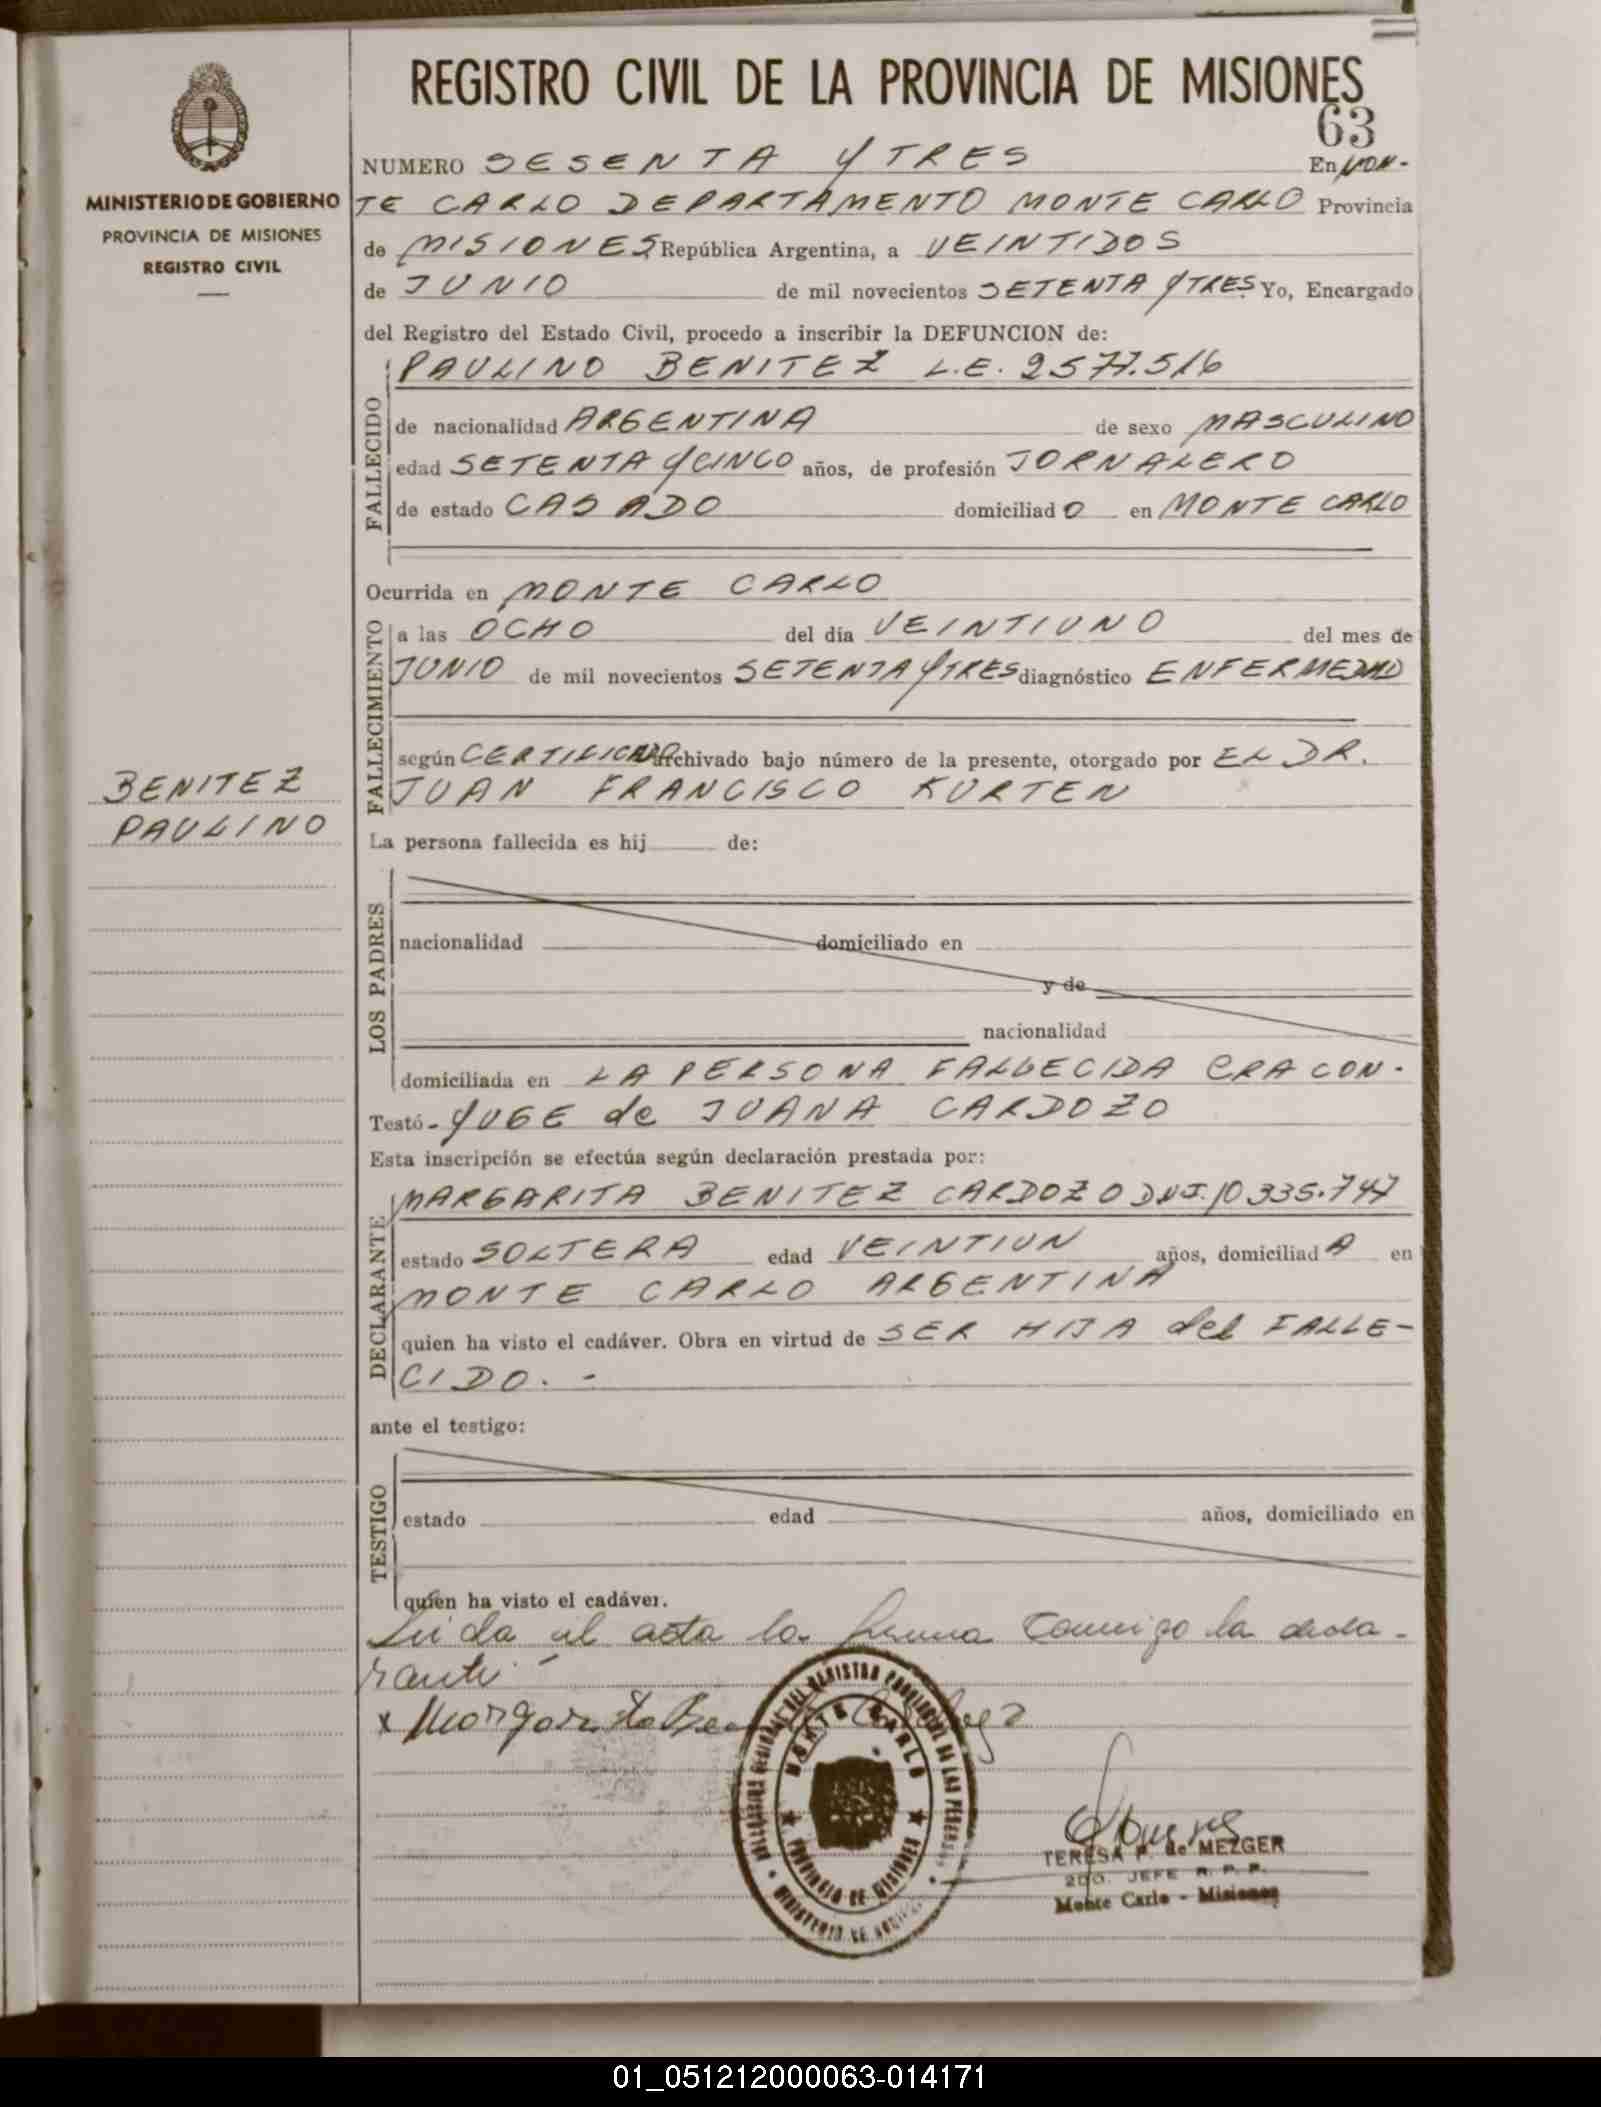 REGISTRO CIVIL DE LA PROVINCIA DE MISIONES
63
MINISTERIO DE GOBIERNO
PROVINCIA DE MISIONES
REGISTRO CIVIL
NUMERO SESENTA Y TRES En MON-
TE CARLO DEPARTAMENTO MONTE CARLO Provincia
de MISIONES República Argentina, a VEINTIDOS
de JUNIO de mil novecientos SETENTA Y TRES Yo, Encargado
del Registro del Estado Civil, procedo a inscribir la DEFUNCION de:
FALLECIDO
PAULINO BENITEZ L.E. 2577.516
de nacionalidad ARGENTINA de sexo MASCULINO
edad SETENTA Y CINCO años, de profesión JORNALERO
de estado CASADO domiciliad O en MONTE CARLO
Ocurrida en MONTE CARLO
FALLECIMIENTO
a las OCHO del día VEINTIUNO del mes de
JUNIO de mil novecientos SETENTA Y TRES diagnóstico ENFERMEDAD
según CERTIFICADO archivado bajo número de la presente, otorgado por EL DR.
JUAN FRANCISCO KURTEN
BENITEZ
PAULINO
La persona fallecida es hij de:
LOS PADRES
nacionalidad domiciliado en
y de
nacionalidad
domiciliada en LA PERSONA FALLECIDA ERA CON-
Testó- YUGE de JUANA CARDOZO
Esta inscripción se efectúa según declaración prestada por:
DECLARANTE
MARGARITA BENITEZ CARDOZO DNI. 10 335.747
estado SOLTERA edad VEINTIUN años, domiciliad A en
MONTE CARLO ARGENTINA
quien ha visto el cadáver. Obra en virtud de SER HIJA del FALLE-
CIDO. -
ante el testigo:
TESTIGO
estado edad años, domiciliado en
quien ha visto el cadáver.
Leida el acta la firma conmigo la decla-
rante
x Margarita
MONTE CARLO
PROVINCIA DE MISIONES
MINISTERIO DE
TERESA P. de MEZGER
2DO. JEFE R. P. P.
Monte Carlo - Misiones
01_051212000063-014171